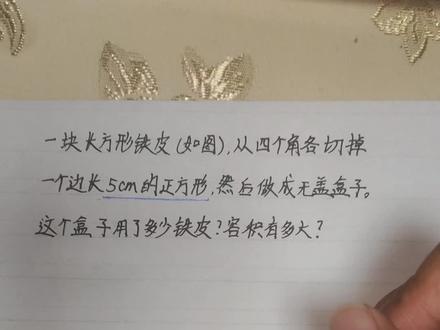 一块长方形铁皮(如图),从四个角各切掉
一个边长5cm的正方形,然后做成无盖盒子。
这个盒子用了多少铁皮?容积有多大?